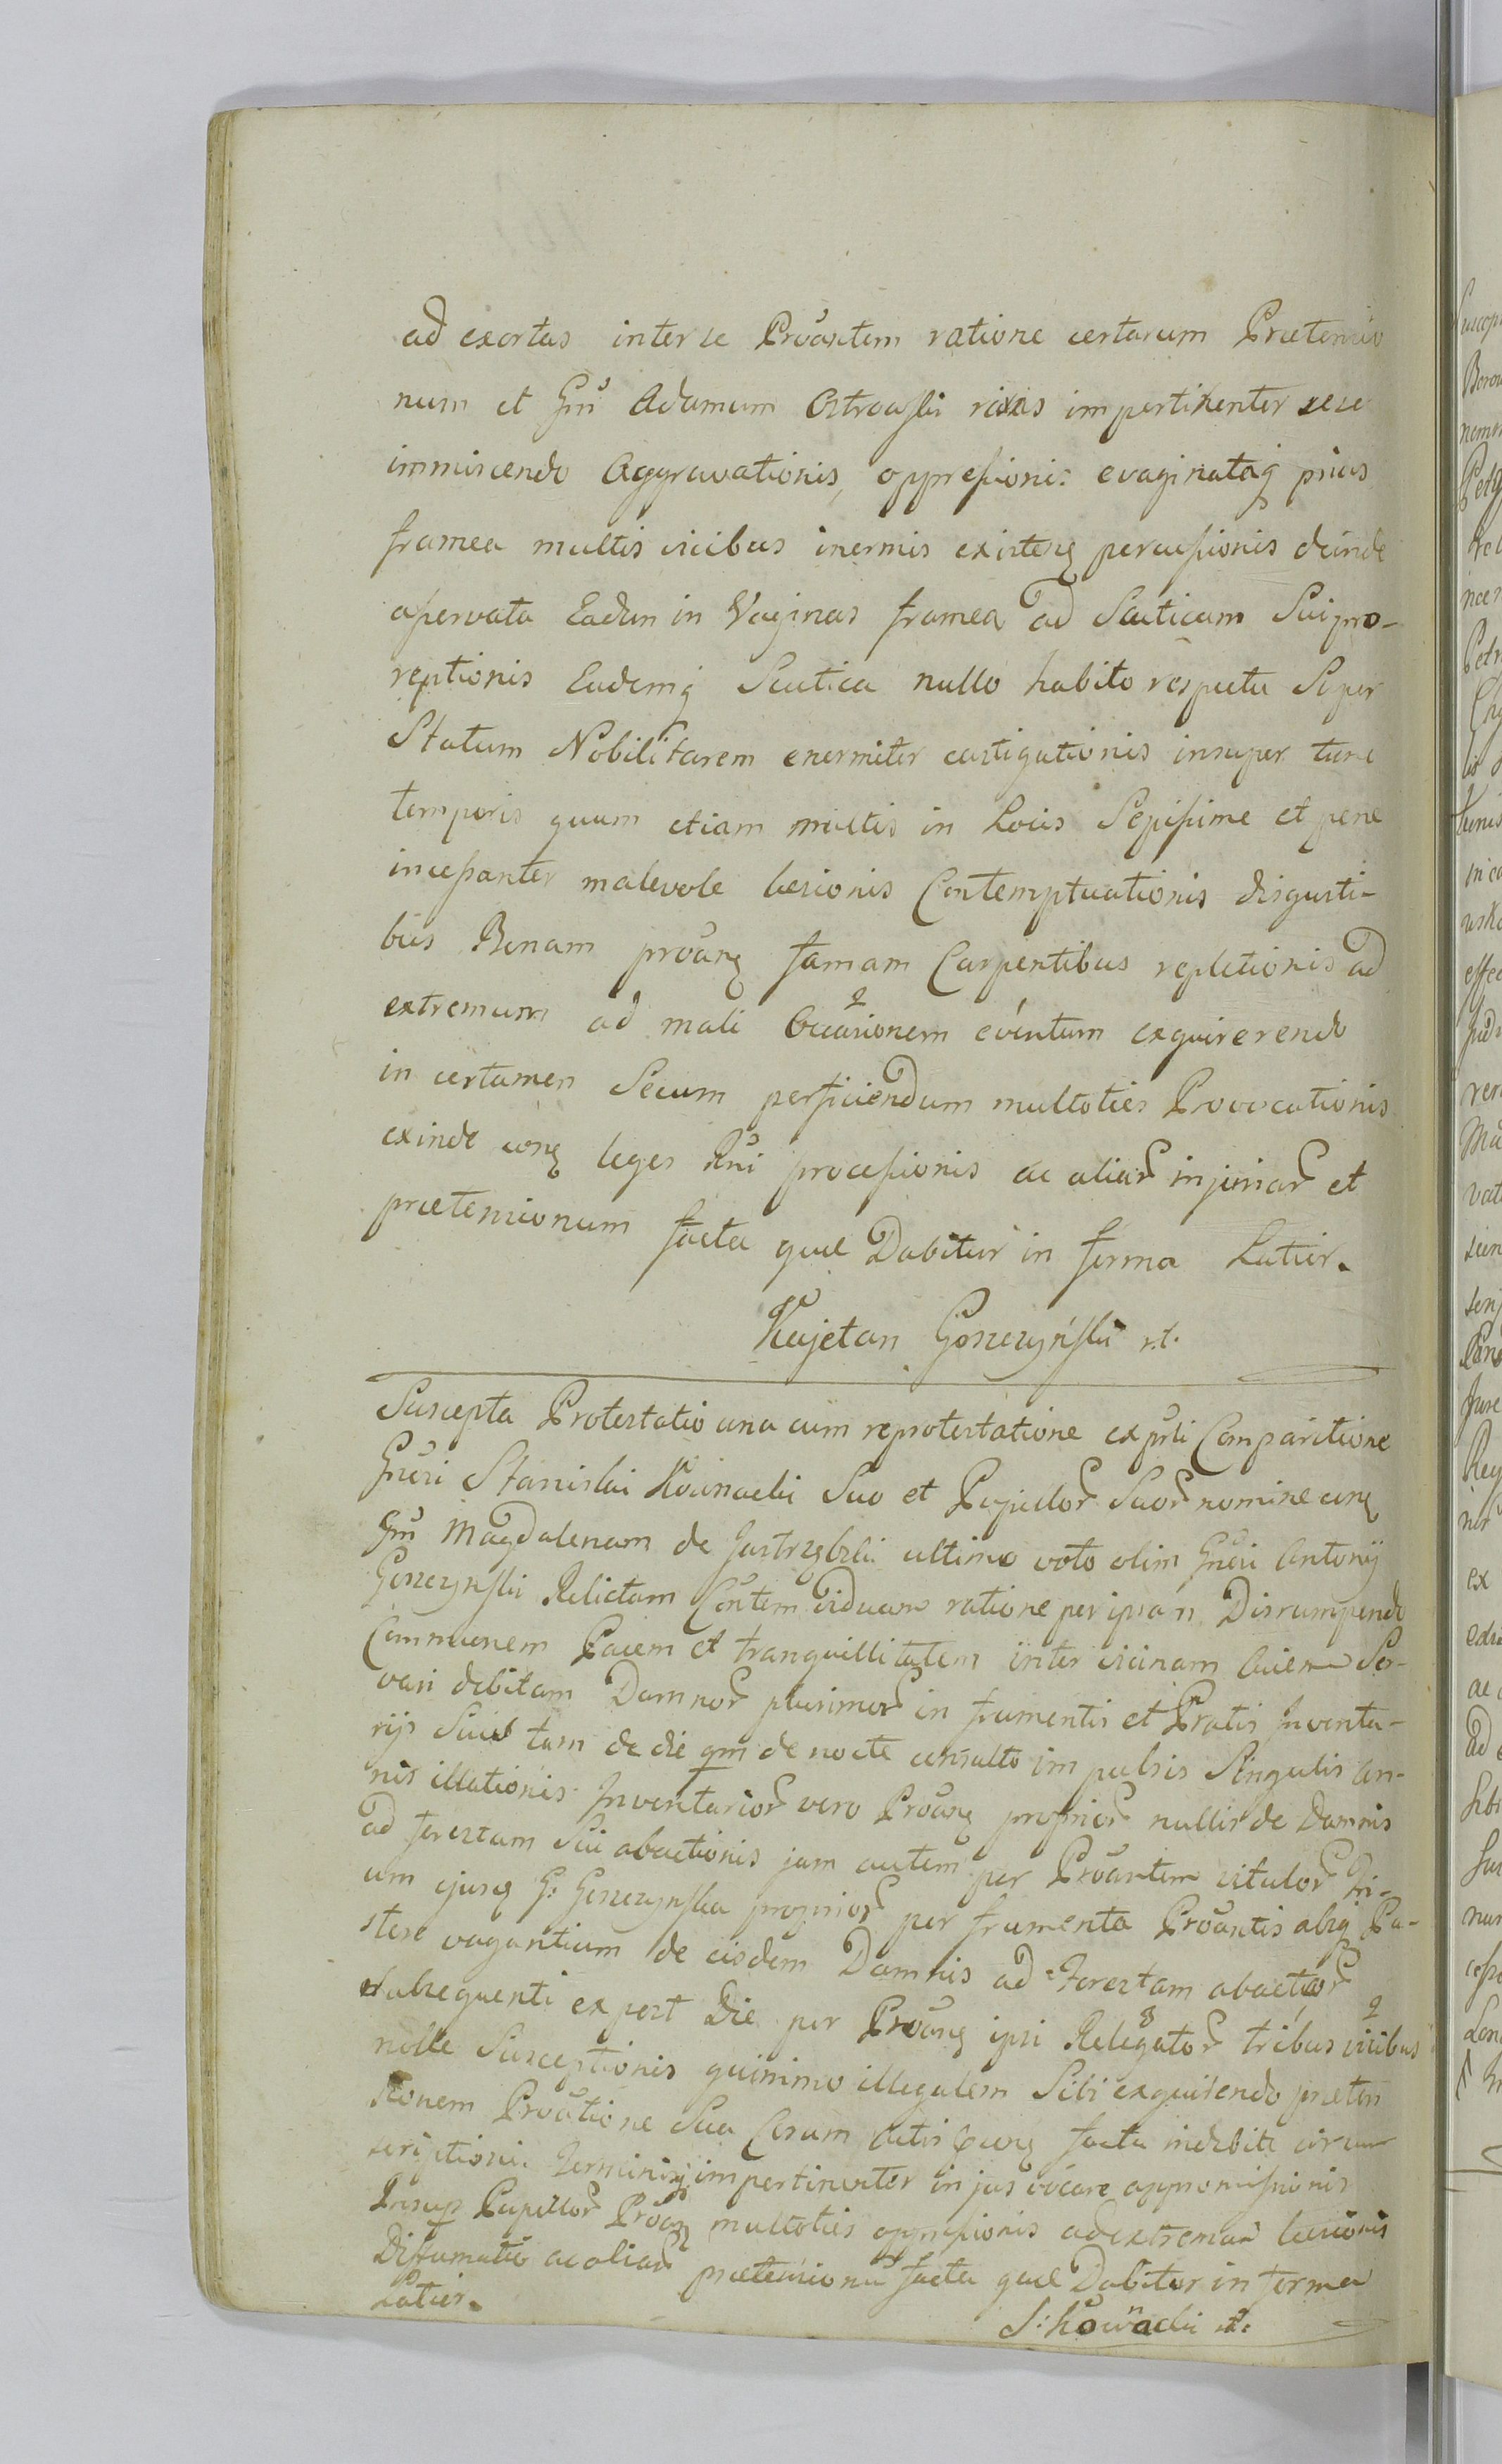 ad exortas inter se Prõantem ratione certarum Prætensio
num et Gm̃ Adamum Ostrowski rixas impertinenter sese
immiscendo Aggravationis, oppreßionis evaginataq prius
framea multis vicibus inermis existeñ percußionis deinde
aßervata Eadem in Vaginas framea ad Scuticam Sui pro-
reptionis Eademq Scutica nullo habito respectu Super
Statum Nobilitarem enormiter castigationis insuper tunc
temporis quum etiam multis in Locis Sepißime et pene
inceßanter malevole læsionis Contemptuationis disgusti-
bus Bonam prõañ famam Carpentibus repletionis ad
extremum ad mali Occasionem eventum exquirerendo
in certamen Secum perficiendum multoties Provocationis
exinde coñ leges Rñi proceßionis ac aliar injuriar et
prætensionum facta quæ Dabitur in forma Latior.
Kajetan Goszczyński
Suscepta Protestatio una cum reprotestatione ex prli Comparitione
Gñsi Stanislai Kownacki Suo et Pupillor Suor nomine coñ
Gm̃ Magdalenam de Jastrzębski ultimo voto olim Gñsi Antonij
Goszczynski Relictam Coñtem Viduam ratione per ipsam Disrumpendo
Communem Pacem et tranquillitatem inter vicinam Ser-
vari debitam Damnor plurimor in frumentis et Pratis Inventa-
rijs Suis tam de die qm de nocte consulto impulsis Singulis An-
nis illationis Inventarior vero Prõañ proprior nullis de Damnis
ad forestam Sui abactionis jam autem per Prõantem vitulor Tri-
um ejusq G: Goszczynska proprior per frumenta Prõantis absq Pa-
store vagantium de eisdem Damnis ad Forestam abactor
subsequenti ex post Die per Prõañ ipsi Relegator tribus vicibus
nolle Susceptionis quinimo illegalem Sibi exquirendo præten
sionem Prõatione Sua Coram Actis facta indebite circum
scriptionis Terminisq impertinenter in jus vocare appromißionis
Insup Pupillor Prõañ multoties oppreßionis ad extremam læsionis
Diffamatio ac aliar prætensionũ facta quæ Dabitur in forma
Latior.
S: Kownacki